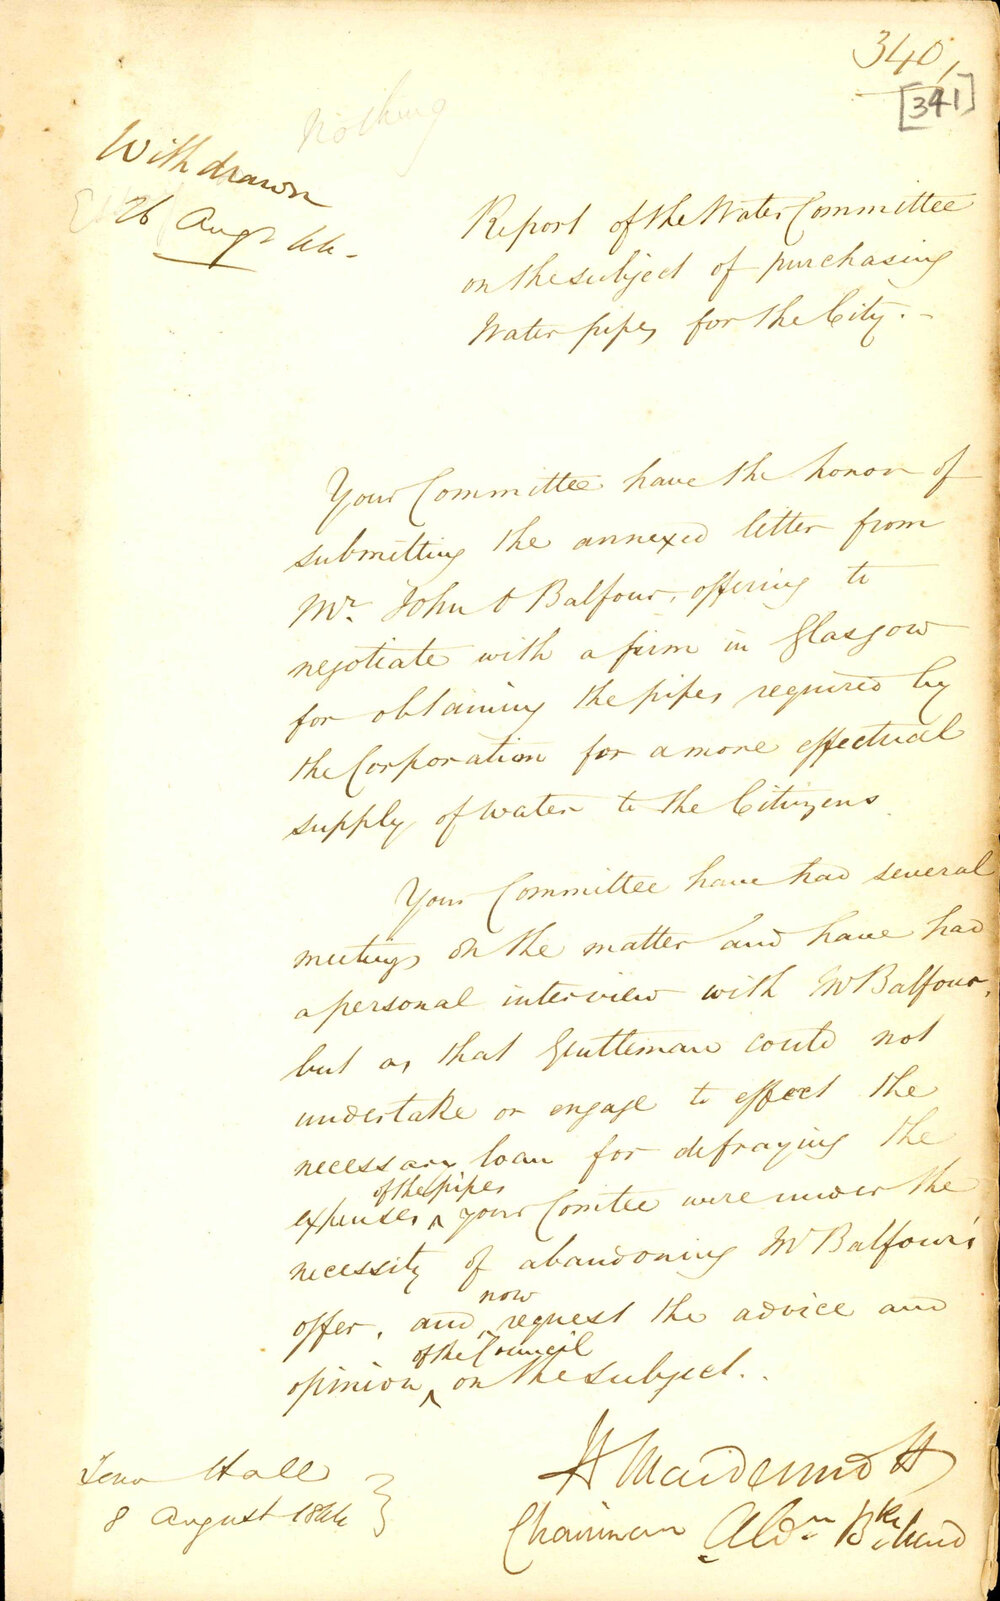 340,
[341]
Nothing
Withdrawn
26 Augt 44.
Report of the Water Committee
on the subject of purchasing
Water pipes for the City.
Your Committee have the honor of
submitting the annexed letter from
Mr. John Balfour, offering to
negotiate with a firm in Glasgow
for obtaining the pipes required by
the Corporation for a more effectual
supply of water to the Citizens
Your Committee have had several
meetings on the matter and have had
a personal interview with Mr Balfour,
but as that Gentleman could not
undertake or engage to effect the
necessary loan for defraying the
of the pipes
expenses ^ your Comtee were under the
necessity of abandoning Mr Balfour's
now
offer, and ^ request the advice and
of the Council
opinion ^ on the subject.
Town Hall
8 August 1844
H Macdermott
Chairman Aldn